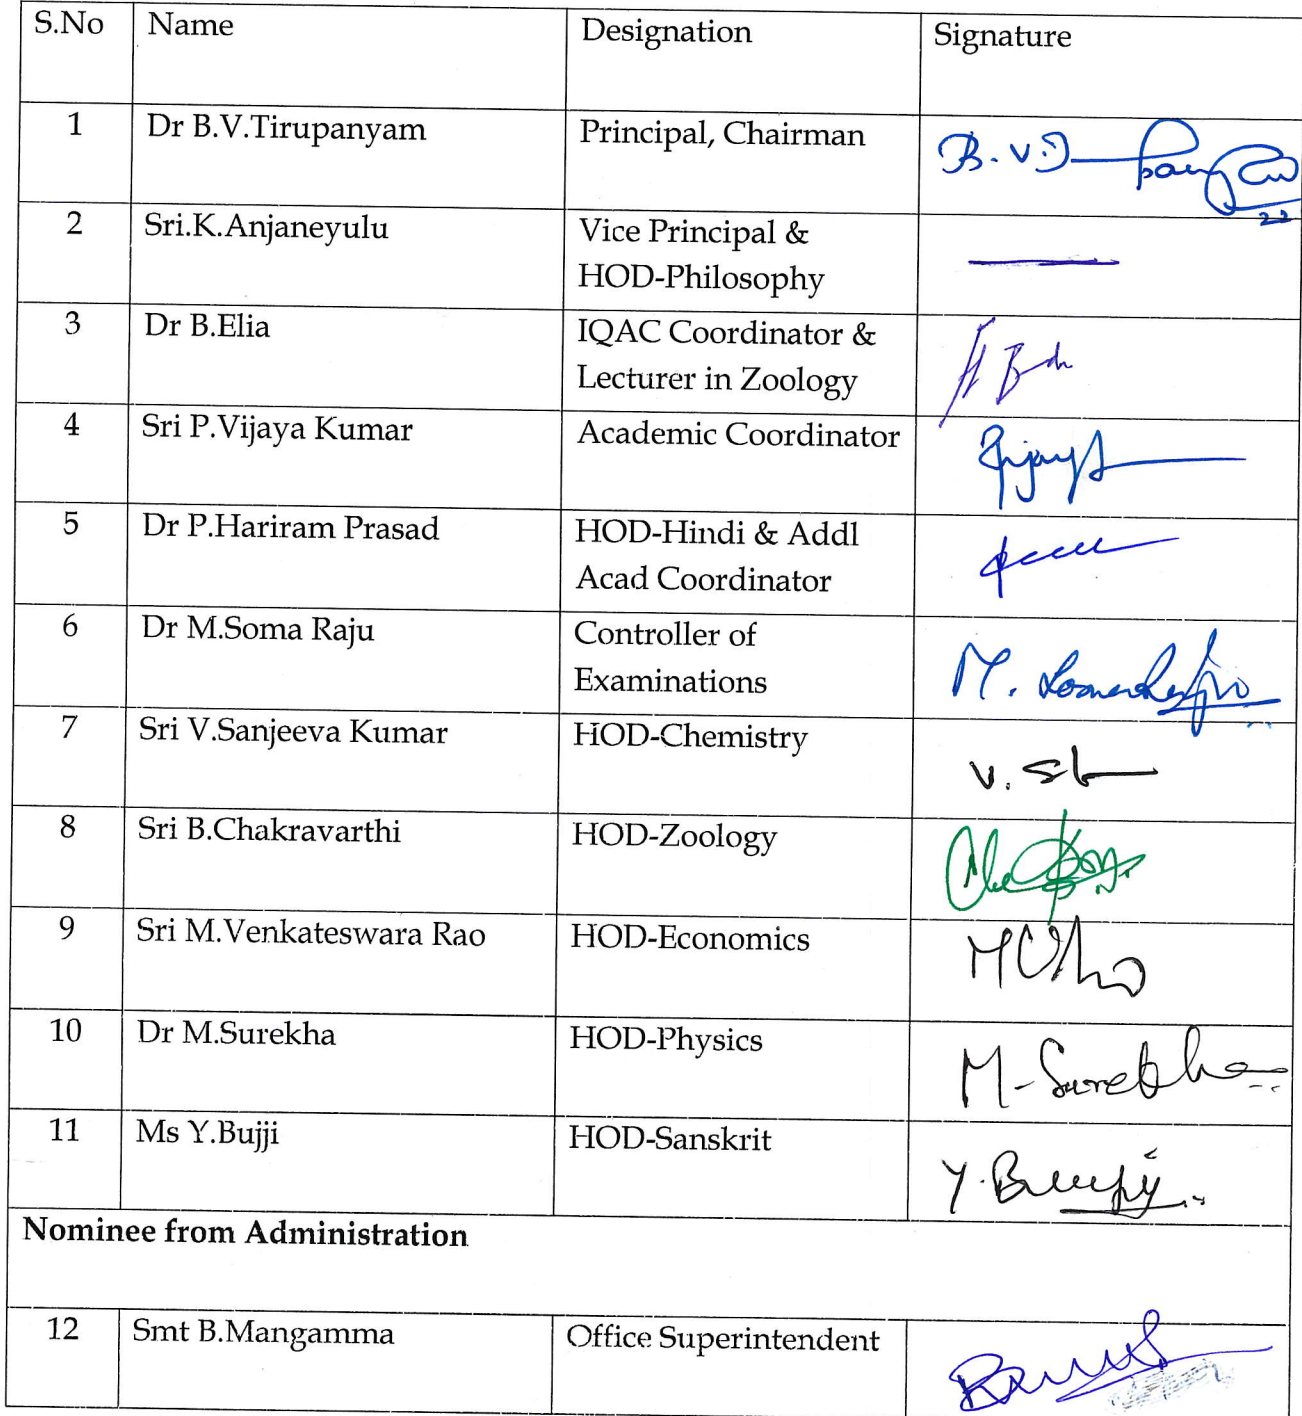 S.No Name Designation Signature
1 Dr B.V.Tirupanyam Principal, Chairman B.V.T
22
2 Sri.K.Anjaneyulu Vice Principal &
HOD-Philosophy
3 Dr B.Elia IQAC Coordinator &
Lecturer in Zoology
4 Sri P.Vijaya Kumar Academic Coordinator
5 Dr P.Hariram Prasad HOD-Hindi & Addl
Acad Coordinator
6 Dr M.Soma Raju Controller of M.
Examinations
7 Sri V.Sanjeeva Kumar HOD-Chemistry V.
8 Sri B.Chakravarthi HOD-Zoology
9 Sri M.Venkateswara Rao HOD-Economics
10 Dr M.Surekha HOD-Physics M-Surekha
11 Ms Y.Bujji HOD-Sanskrit Y.Bujji
Nominee from Administration
12 Smt B.Mangamma Office Superintendent